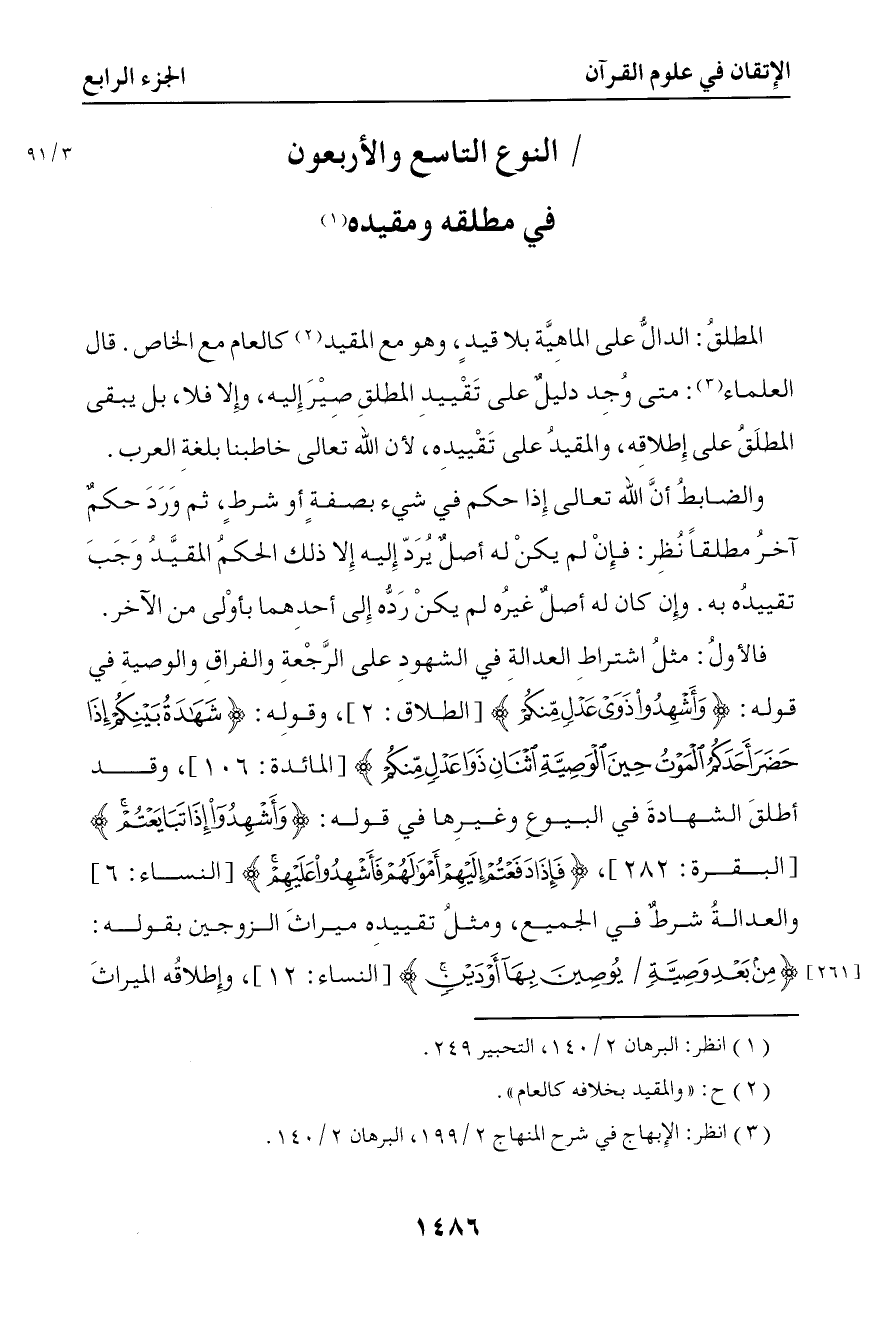 الإتقان في علوم القرآن
الجزء الرابع
/ النوع التاسع والأربعون
٩١/٣
في مطلقه ومقيده(١)
المطلقُ: الدالُّ على الماهيَّة بلا قيدٍ، وهو مع المقيد(٢) كالعام مع الخاص. قال
العلماء(٣): متى وُجد دليلٌ على تَقْييد المطلق صِيْرَ إليه، وإلا فلا، بل يبقى
المطلَقُ على إطلاقه، والمقيدُ على تَقْييده، لأن الله تعالى خاطبنا بلغة العرب.
والضابطُ أنَّ الله تعالى إذا حكم في شيء بصفةٍ أو شرطٍ، ثم وَرَدَ حكمٌ
آخرُ مطلقاً نُظِر: فإنْ لم يكنْ له أصلٌ يُرَدّ إليه إلا ذلك الحكمُ المقيَّدُ وَجَبَ
تقييدُه به. وإن كان له أصلٌ غيرُه لم يكنْ رَدُّه إلى أحدهما بأوْلى من الآخر.
فالأولُ: مثلُ اشتراط العدالة في الشهود على الرَّجْعةِ والفراق والوصية في
قوله: ﴿وَأَشْهِدُواْ ذَوَىْ عَدْلٍ مِّنكُمْ﴾ [الطلاق: ٢]، وقوله: ﴿شَهَٰدَةُ بَيْنِكُمْ إِذَا
حَضَرَ أَحَدَكُمُ ٱلْمَوْتُ حِينَ ٱلْوَصِيَّةِ ٱثْنَانِ ذَوَا عَدْلٍ مِّنكُمْ﴾ [المائدة: ١٠٦]، وقد
أطلقَ الشهادةَ في البيوع وغيرها في قوله: ﴿وَأَشْهِدُوٓاْ إِذَا تَبَايَعْتُمْۚ﴾
[البقرة: ٢٨٢]، ﴿فَإِذَا دَفَعْتُمْ إِلَيْهِمْ أَمْوَٰلَهُمْ فَأَشْهِدُواْ عَلَيْهِمْۚ﴾ [النساء: ٦]
والعدالةُ شرطٌ في الجميع، ومثلُ تقييده ميراثَ الزوجين بقوله:
[٢٦١] ﴿مِنۢ بَعْدِ وَصِيَّةٍ / يُوصِينَ بِهَآ أَوْ دَيْنٍۚ﴾ [النساء: ١٢]، وإطلاقُه الميراثَ
(١) انظر: البرهان ١٤٠/٢، التحبير ٢٤٩.
(٢) ح: «والمقيد بخلافه كالعام».
(٣) انظر: الإبهاج في شرح المنهاج ١٩٩/٢، البرهان ١٤٠/٢.
١٤٨٦